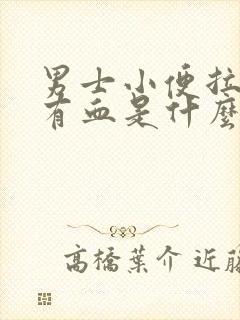 男士小便拉
有血是什麼
高橋葉介 近藤